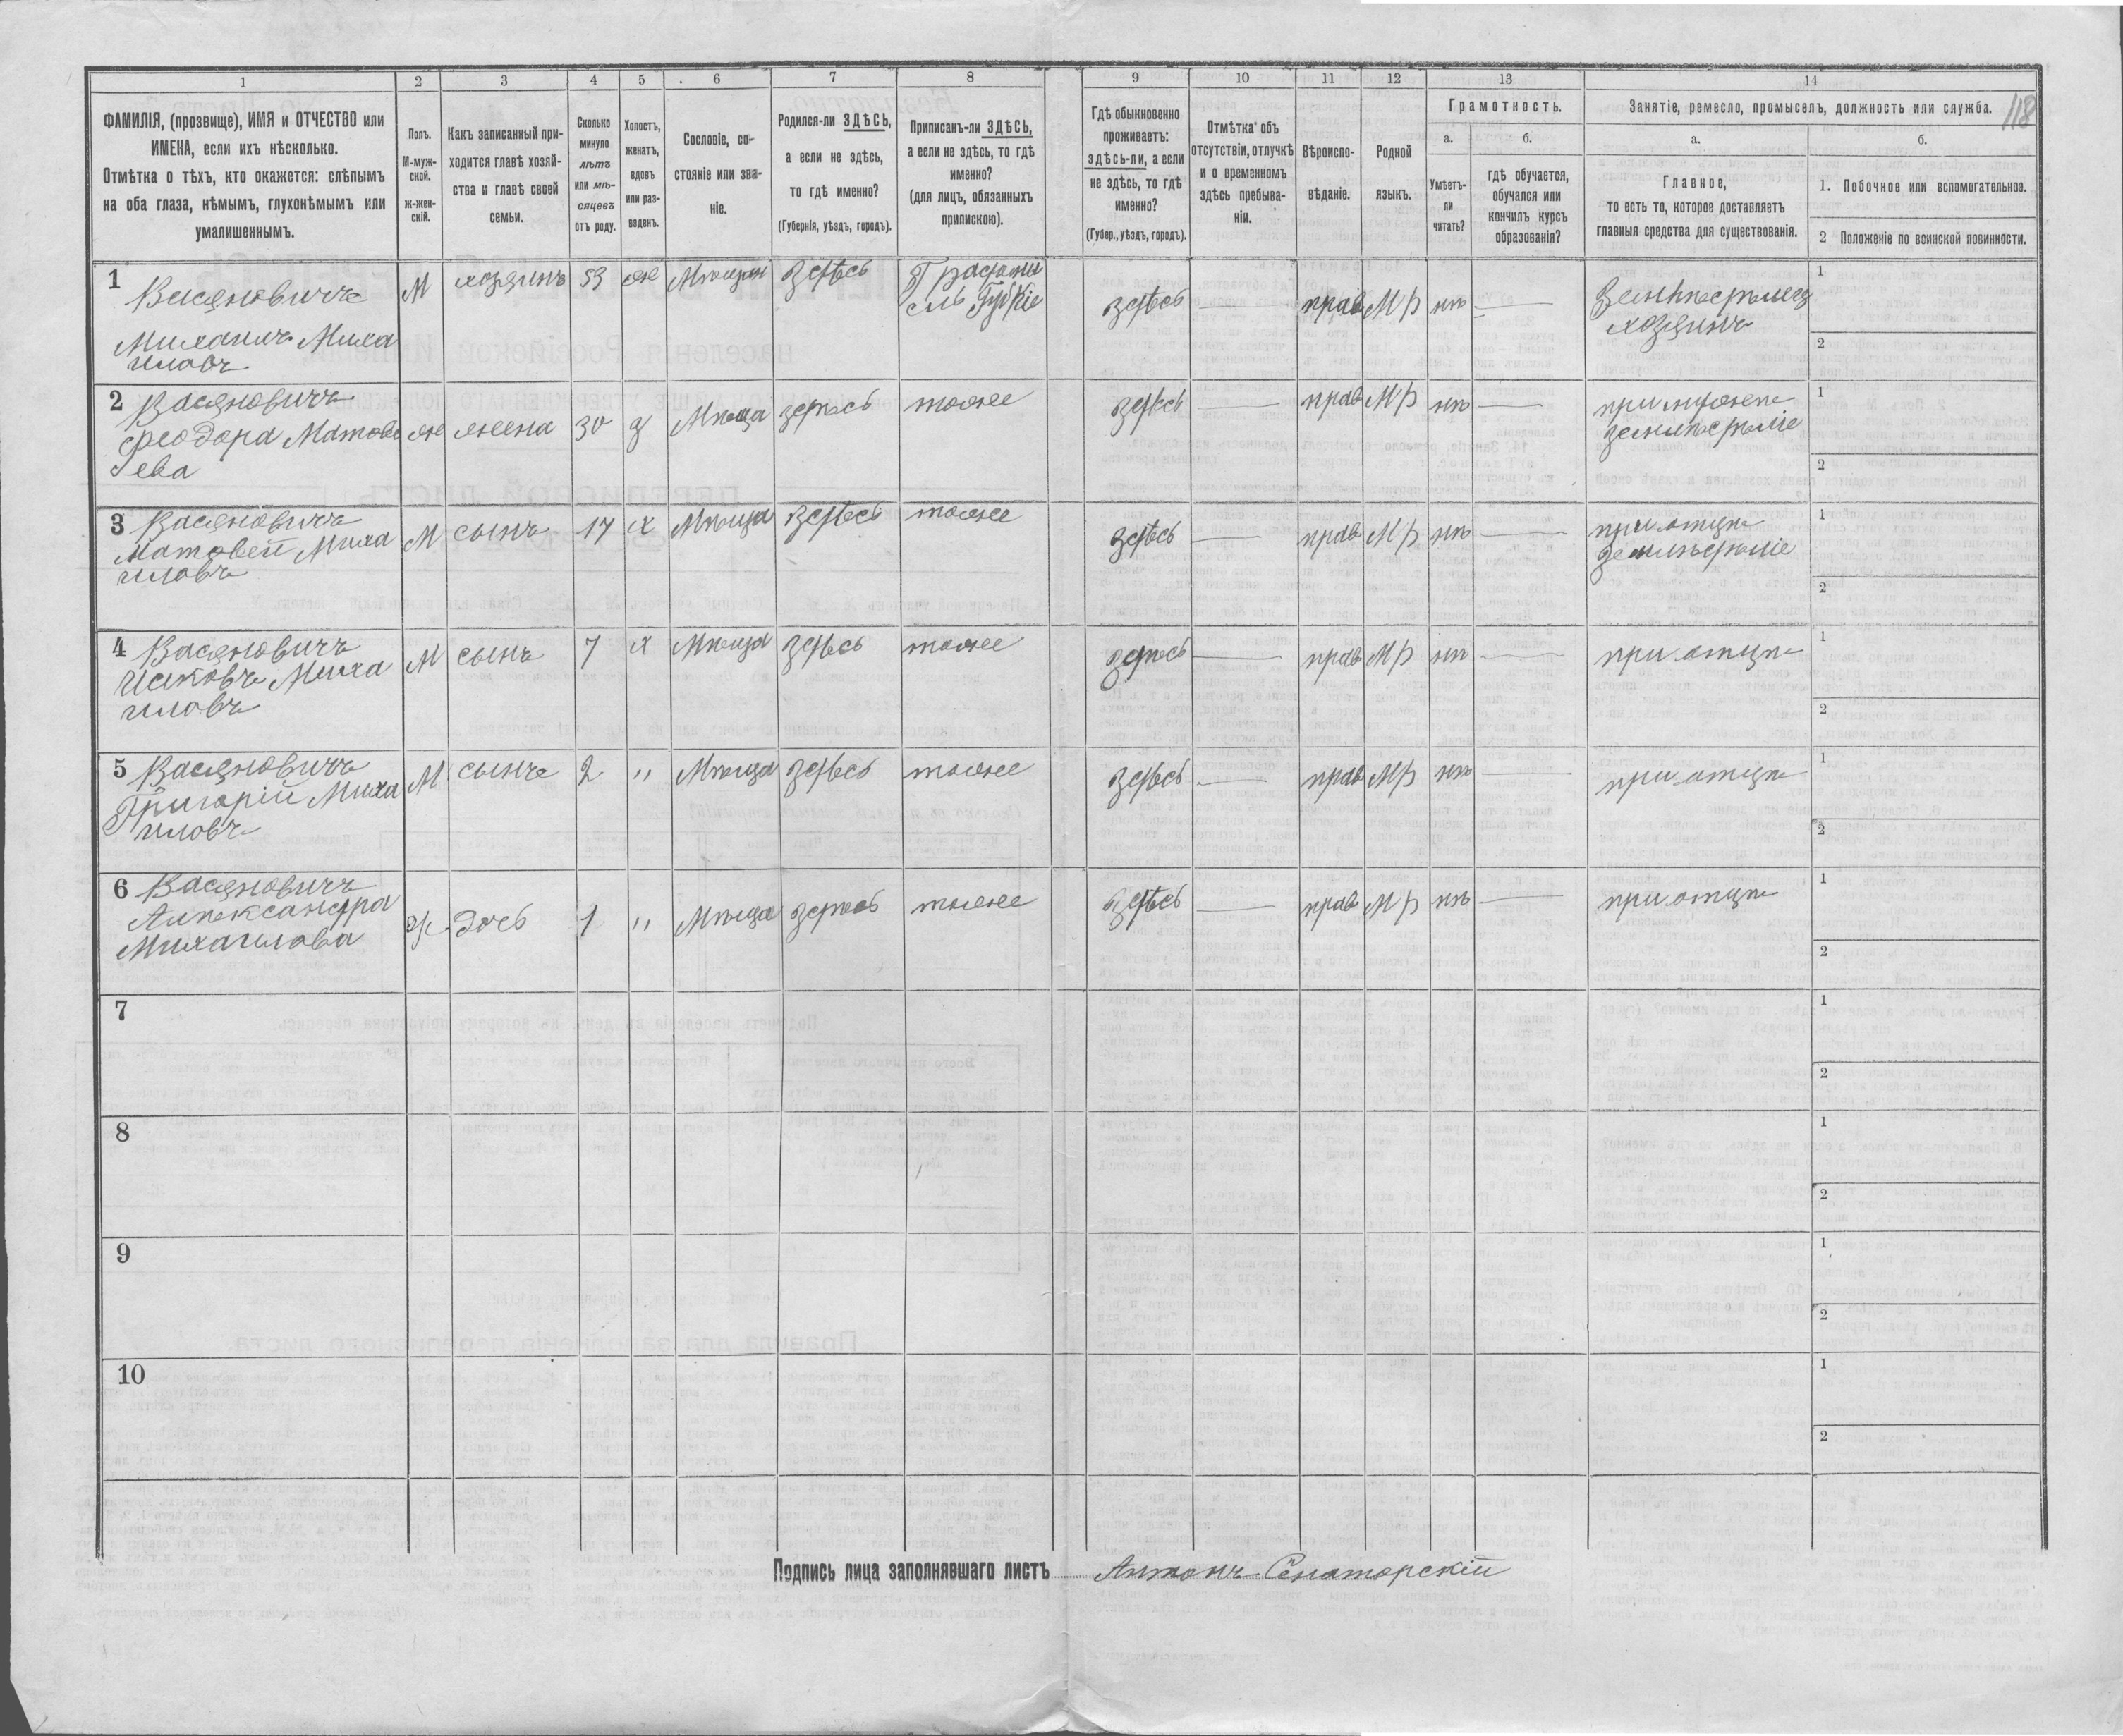 1 2 3 4 5 6 7 8 9 10 11 12 13 14
118
ФАМИЛІЯ, (прозвище), ИМЯ и ОТЧЕСТВО или
ИМЕНА, если ихъ нѣсколько.
Отмѣтка о тѣхъ, кто окажется: слѣпымъ
на оба глаза, нѣмымъ, глухонѣмымъ или
умалишеннымъ.
Полъ.
М-муж-
ской.
ж-жен-
скій.
Какъ записанный при-
ходится главѣ хозяй-
ства и главѣ своей
семьи.
Сколько
минуло
лѣтъ
или мѣ-
сяцевъ
отъ роду.
Холостъ,
женатъ,
вдовъ
или раз-
веденъ.
Сословіе, со-
стояніе или зва-
ніе.
Родился-ли ЗДѢСЬ,
а если не здѣсь,
то гдѣ именно?
(Губернія, уѣздъ, городъ).
Приписанъ-ли ЗДѢСЬ,
а если не здѣсь, то гдѣ
именно?
(для лицъ, обязанныхъ
припискою).
Гдѣ обыкновенно
проживаетъ:
здѣсь-ли, а если
не здѣсь, то гдѣ
именно?
(Губер., уѣздъ, городъ).
Отмѣтка объ
отсутствіи, отлучкѣ
и о временномъ
здѣсь пребыва-
ніи.
Вѣроиспо-
вѣданіе.
Родной
языкъ.
Грамотность.
а.
Умѣетъ-
ли
читать?
б.
гдѣ обучается,
обучался или
кончилъ курсъ
образованія?
Занятіе, ремесло, промыселъ, должность или служба.
а.
Главное,
то есть то, которое доставляетъ
главныя средства для существованія.
б.
1. Побочное или вспомогательное.
2 Положеніе по воинской повинности.
1 Васяновичъ
Михаилъ Миха
иловъ
М хозяинъ 53 ж Мѣщан здѣсь
здѣсь — прав М р нѣ —
хозяинъ
1
2
2 Васяновичъ
Феодора Матове
ева
ж жена 30 з Мѣща здѣсь тоже
здѣсь — прав М р нѣ —
при мужѣ
земледѣліе
1
2
3 Васяновичъ
Матовей Миха
иловъ
М сынъ 17 х Мѣща здѣсь тоже
здѣсь — прав М р нѣ —
при отцѣ
земледѣліе
1
2
4 Васяновичъ
Исаковъ Миха
иловъ
М сынъ 7 х Мѣща здѣсь тоже
здѣсь — прав М р нѣ —
при отцѣ
1
2
5 Васяновичъ
Григорій Миха
иловъ
М сынъ 2 " Мѣща здѣсь тоже
здѣсь — прав М р нѣ —
при отцѣ
1
2
6 Васяновичъ
Александра
Михаилова
ж. дочь 1 " Мѣща здѣсь тоже
здѣсь — прав М р нѣ —
при отцѣ
1
2
7
1
2
8
1
2
9
1
2
10
1
2
Подпись лица заполнявшаго листъ Антонъ Сенаторскій